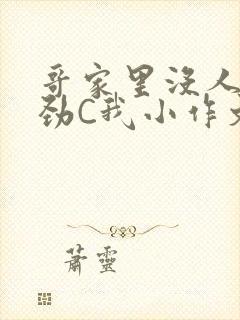 哥家里没人
劲C我小作文
萧靈